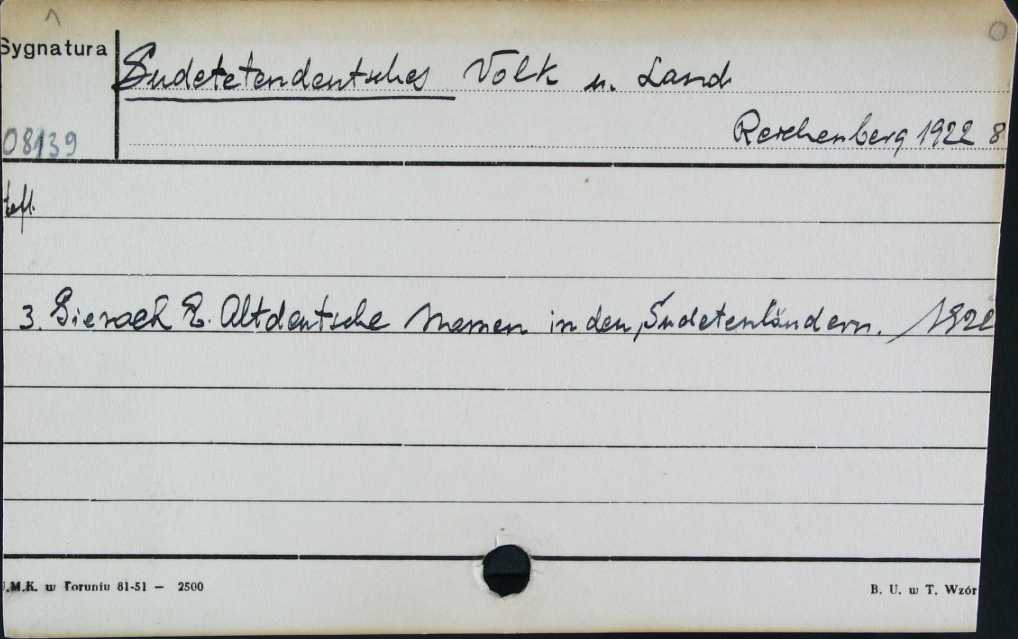 Sygnatura
Sudetetendeutsches Volk u. Land
Reichenberg 1922 8
08139
Hefl.
3. Gierach E. Altdeutsche Namen in den Sudetenländern. /1922
U.M.K. w Toruniu 81-51 — 2500
B. U. w T. Wzór